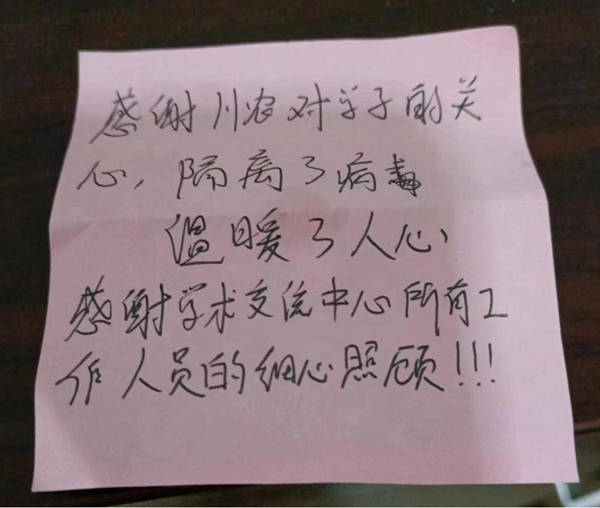 感谢川农对学子的关
心，隔离了病毒
温暖了人心
感谢学术交流中心所有工
作人员的细心照顾!!!